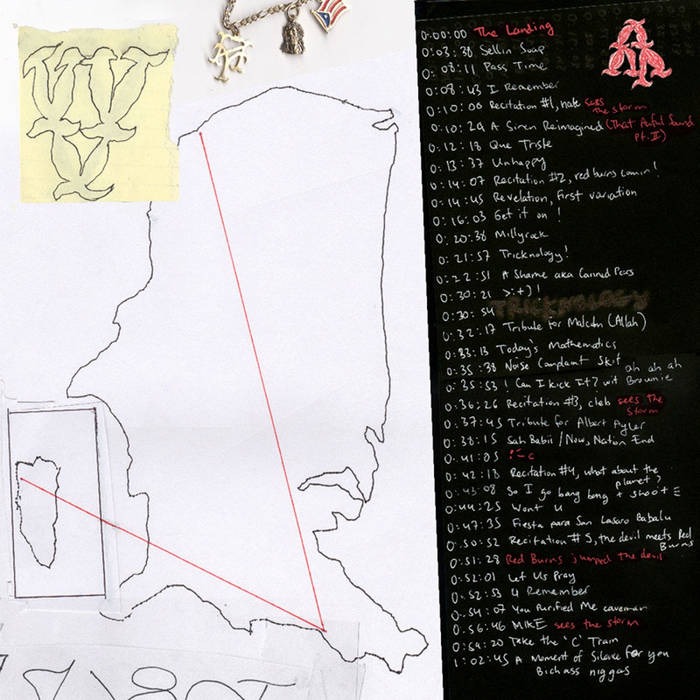 0:00:00 The Landing
0:03:38 Sellin Soap
0:08:11 Pass Time
0:08:43 I Remember
0:10:00 Recitation #1, nate sees the storm
0:10:29 A Siren Reimagined (That Awful Sound Pt. II)
0:12:18 Que Triste
0:13:37 Unhappy
0:14:07 Recitation #2, red burns comin!
0:14:45 Revelation, First variation
0:16:03 Get it on!
0:20:38 Millyrock
0:21:57 Tricknology!
0:22:51 A Shame aka Canned Peas
0:30:21 >:+)!
0:30:54 TRICKNOLOGY
0:32:17 Tribute for Malcolm (Allah)
0:33:13 Today's Mathematics
0:35:38 Noise Complaint Skit
0:35:53 ! Can I Kick It? wit Brownie
ah ah ah
0:36:26 Recitation #3, cleb sees the storm
0:37:45 Tribute for Albert Ayler
0:38:15 Sah Babii / Now, Nation End
0:41:05
0:42:13 Recitation #4, what about the planet?
0:43:08 So I go bang bang + shoot
0:44:25 Wont u
0:47:35 Fiesta para San Lasaro Babalu
0:50:52 Recitation #5, the devil meets Red Burns
0:51:28 Red Burns jumped the devil
0:52:01 Let Us Pray
0:52:53 U Remember
0:54:07 You Purified Me caveman
0:56:46 MIKE sees the storm
0:59:20 Take the 'C' Train
1:02:45 A Moment of Silence For you
Bichass niggas